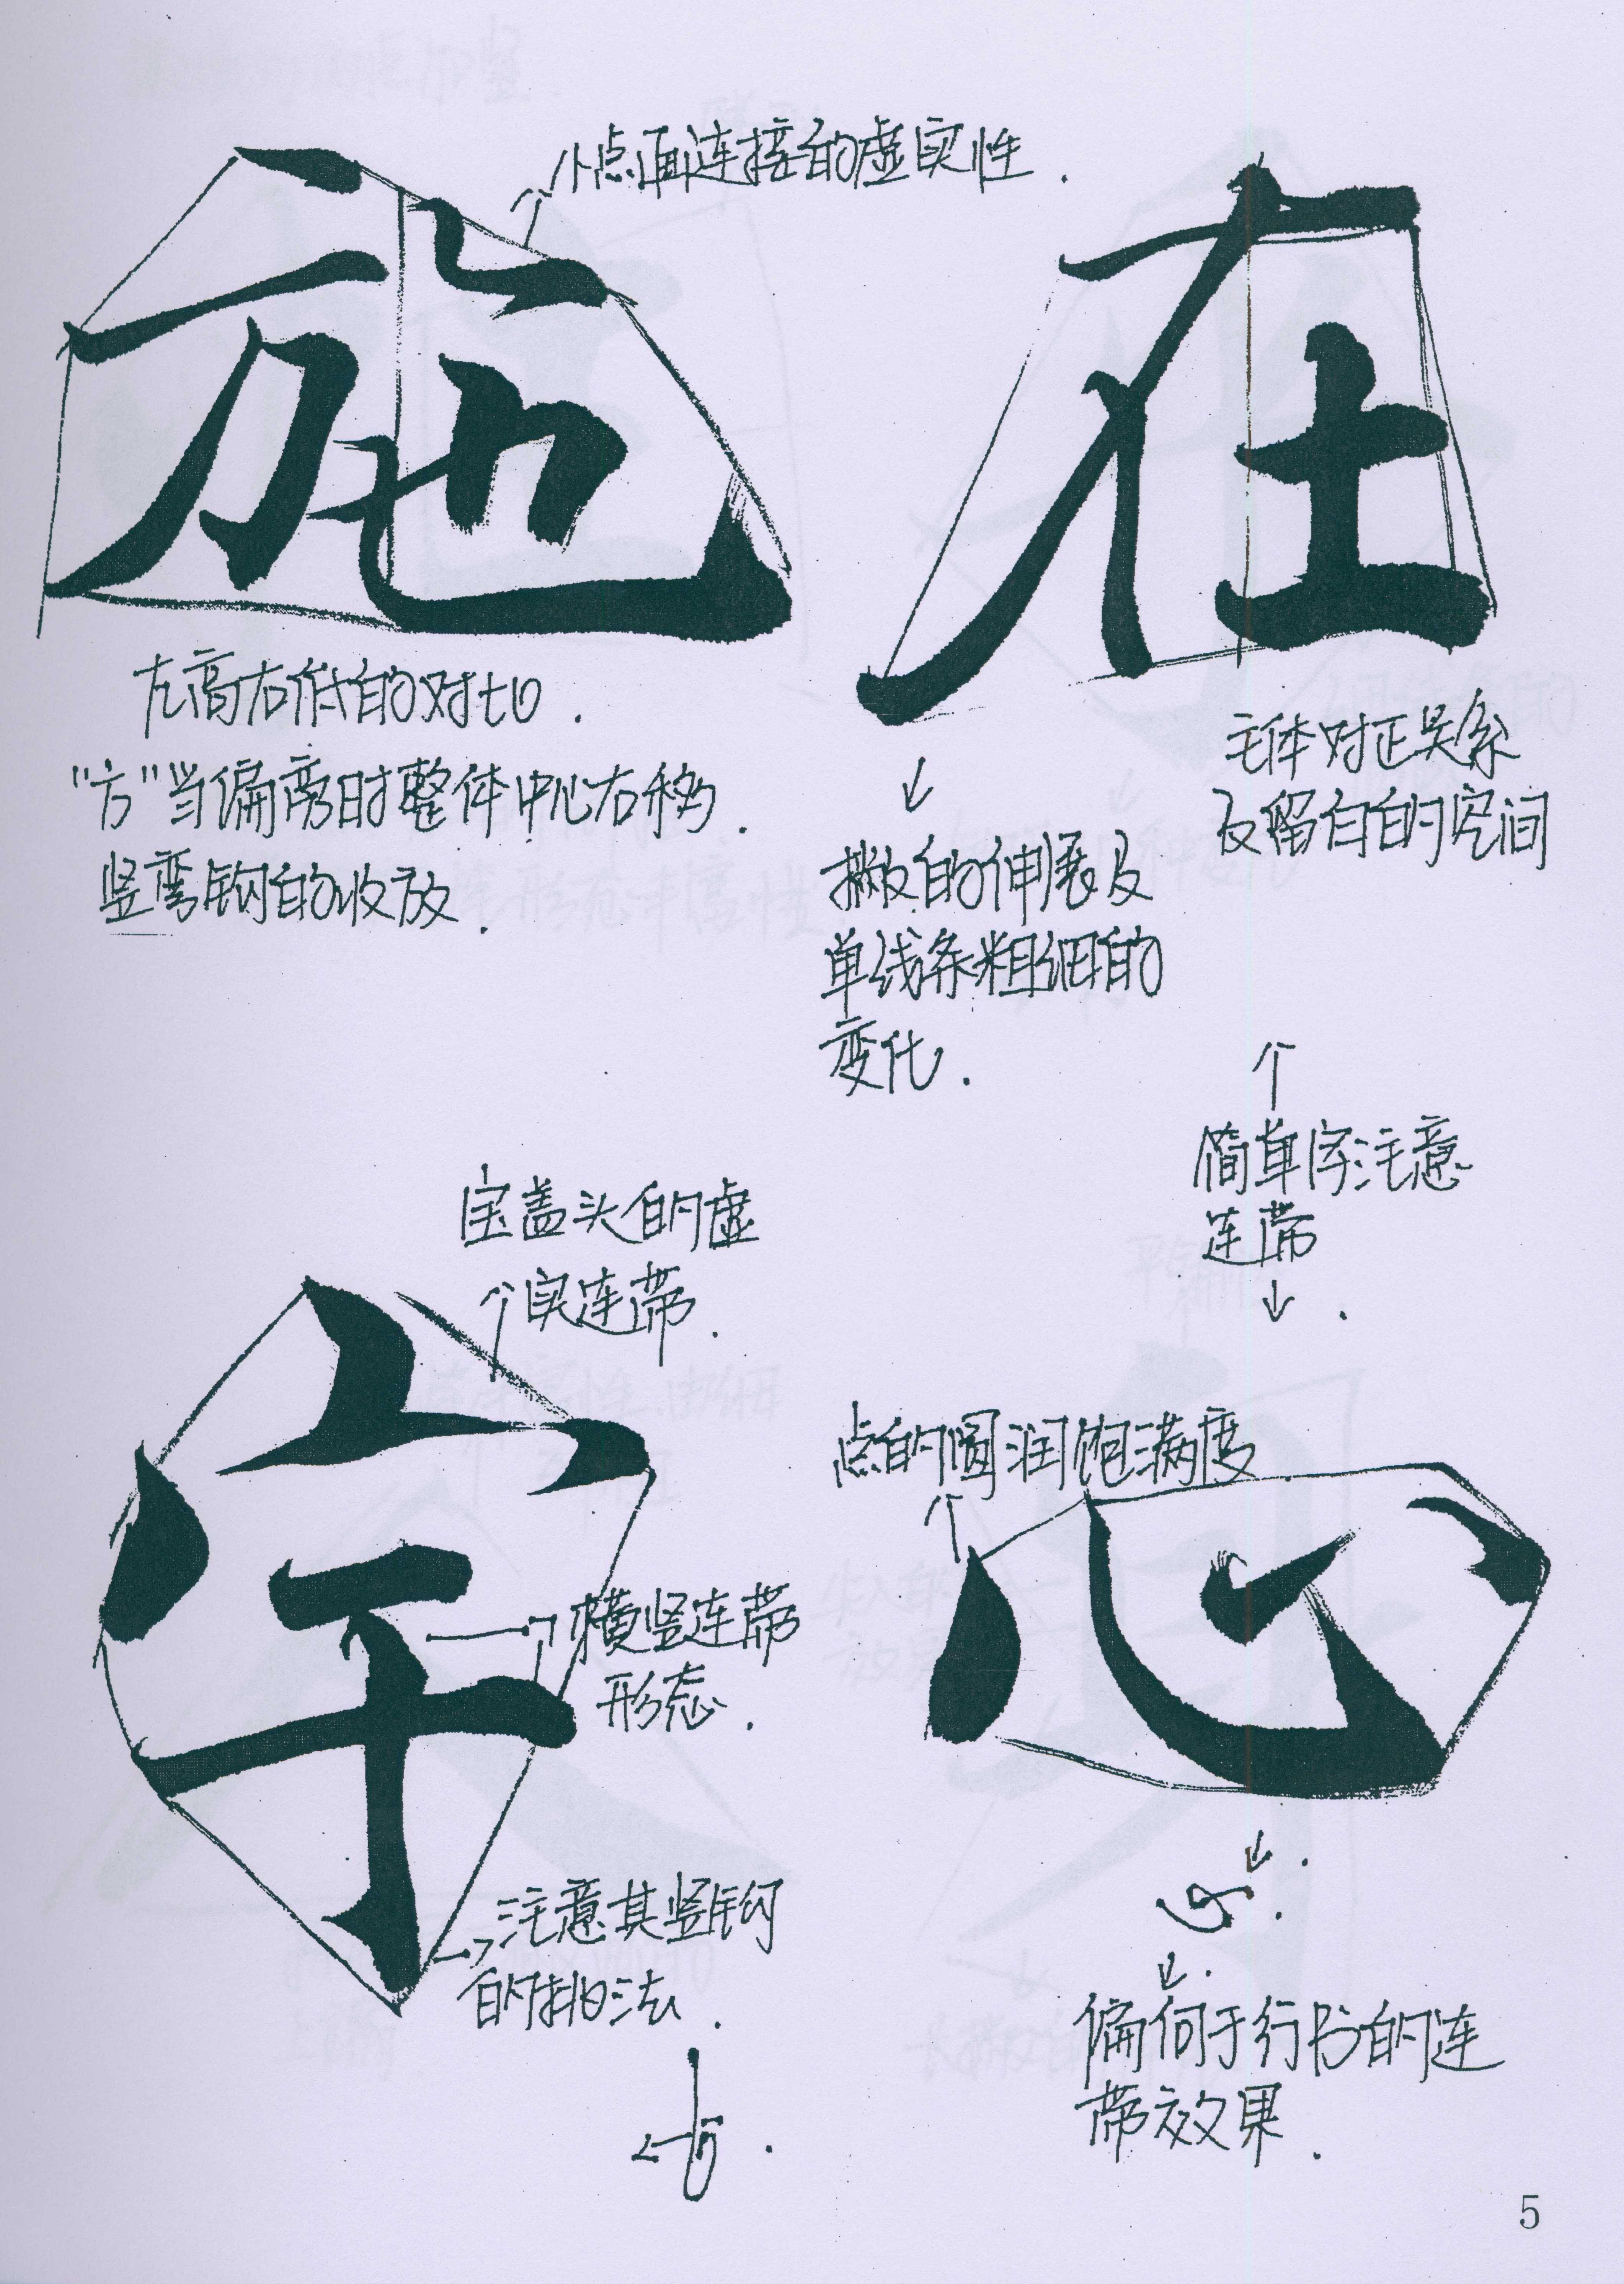 小点画连接的虚实性.
施
左高右低的对切.
"方"当偏旁时整体中心右移.
竖弯钩的收放.
在
主体对正关系
及留白的空间
撇的伸展及
单线条粗细的
变化.
简单字注意
连带
宝盖头的虚
实连带.
字
横竖连带
形态.
注意其竖钩
的排法.
点的圆润饱满度
心
偏向于行书的连
带效果.
5